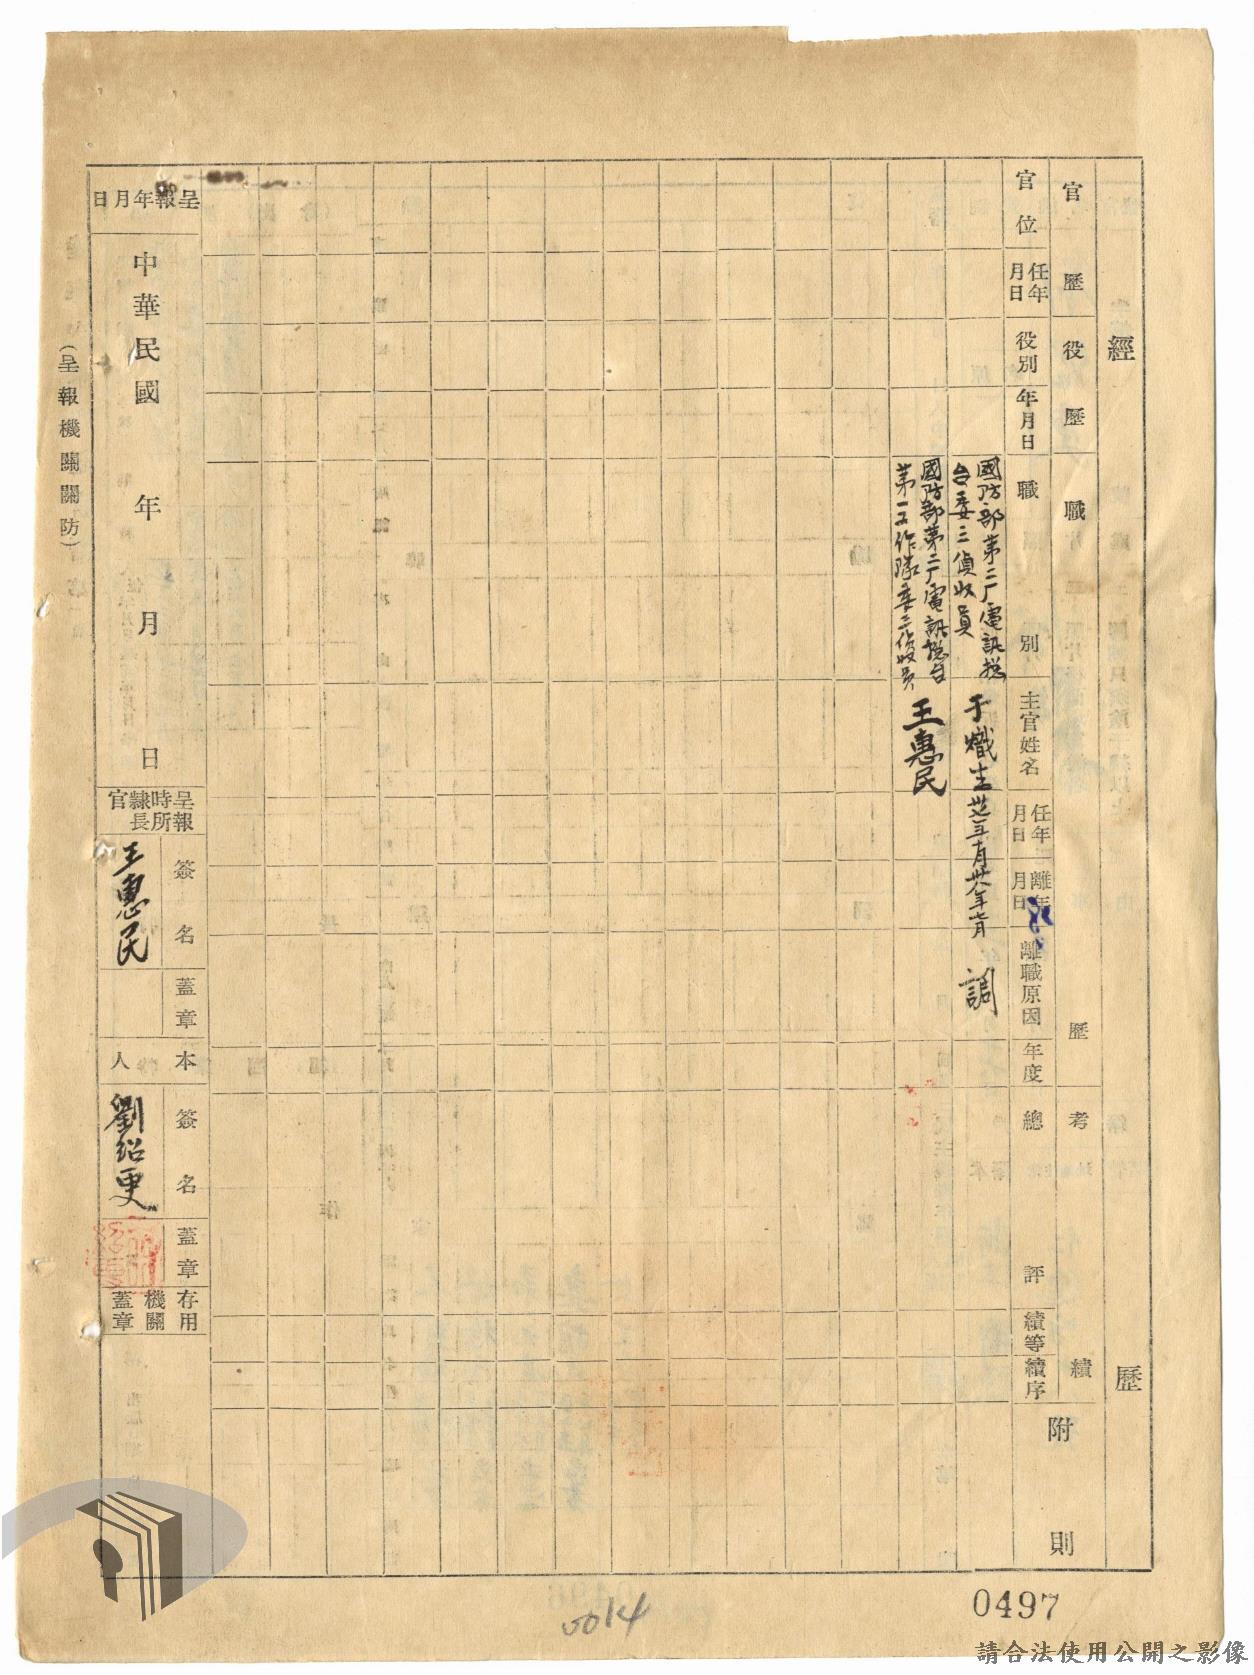 經歷
官歷
役歷
職歷
考績
附則
官位
任年月日
役別
年月日
職別
主官姓名
任年月日
離年月日
離職原因
年度
總評
績等
績序
國防部第二厂電訊總
台委三偵收員
于熾生
調
國防部第二厂電訊總台
第一工作隊委三偵收員
王惠民
呈報年月日
中華民國年月日
呈報時隸所官長
簽名
王惠民
蓋章
本人
簽名
劉紹更
蓋章
存用機關蓋章
(呈報機關關防)
0014
0497
請合法使用公開之影像